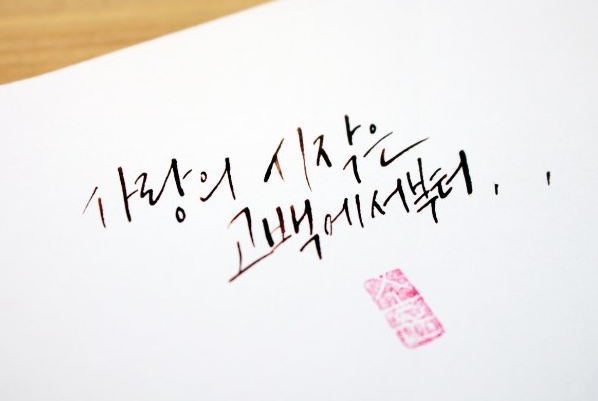 사랑의 시작은
고백에서부터..